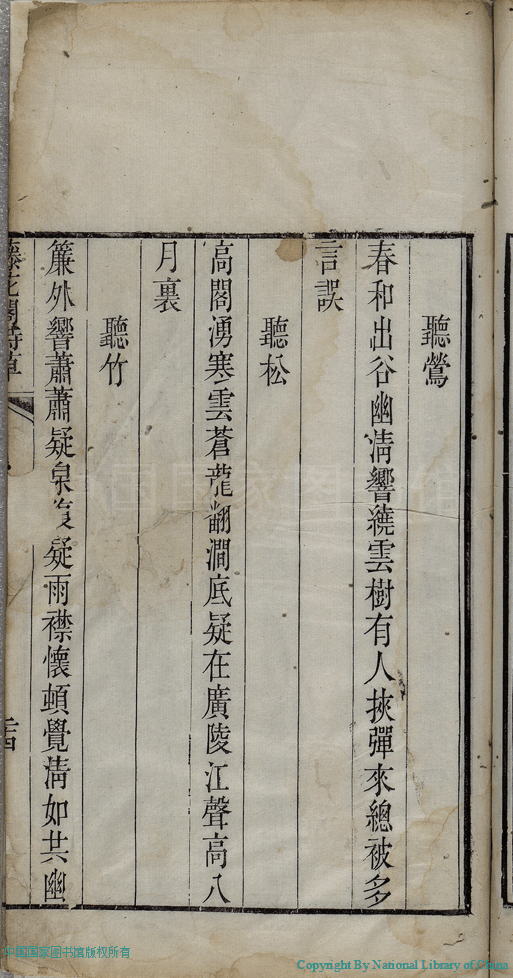 聽鶯
春和出谷幽淸響繞雲樹有人挾彈來總被多
言誤
聽松
高閣湧寒雲蒼龍翻澗底疑在廣陵江聲高八
月裏
聽竹
簾外響蕭蕭疑泉復疑雨襟懷頓覺淸如共幽
藤花閣詩草
二四
中国国家图书馆
中国国家图书馆版权所有
Copyright By National Library of China